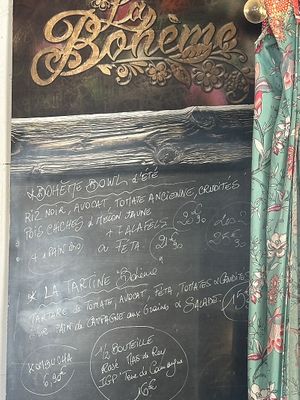 La
Bohème
* BOHÈME BOWL d'ÉTÉ
RIZ NOIR, AVOCAT, TOMATE ANCIENNE, CRUDITÉS
POIS CHICHES & MELON JAUNE
+ FALAFELS
+ 1 PAIN BIO
OU FETA
* LA TARTINE Bohème
TARTARE de TOMATE, AVOCAT, FÉTA, TOMATES
SUR PAIN de CAMPAGNE AUX GRAINES & SALADE
KOMBUCHA
6,90€
1/2 BOUTEILLE
Rosé Mas de Rey
IGP Terre de Camargue
16€